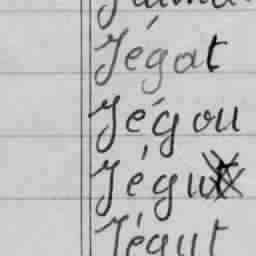 Jégat
Jégou
Jégu
Jégut